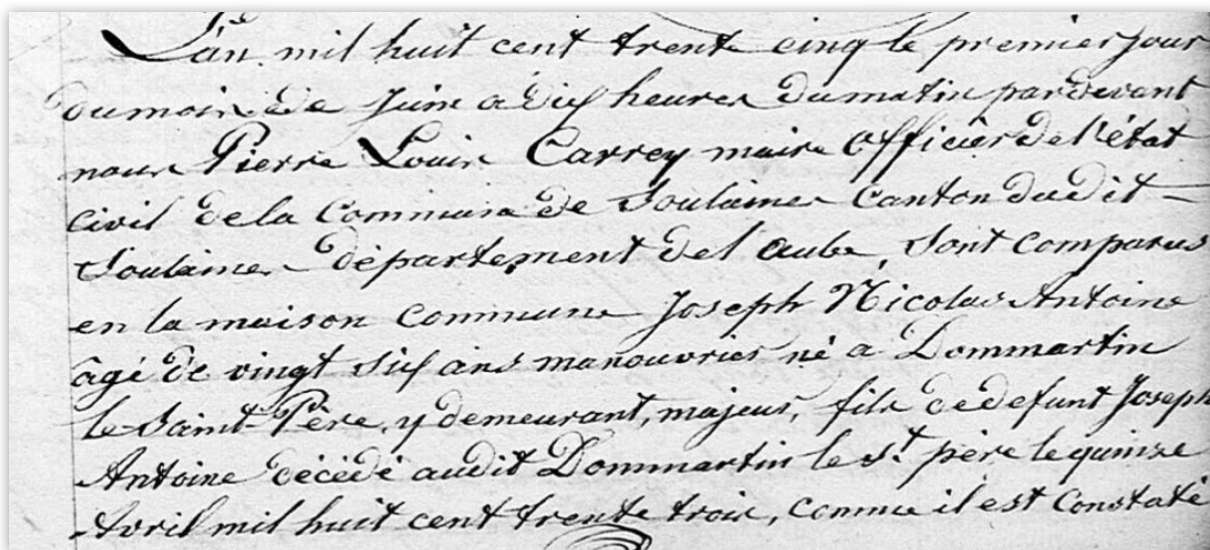 L'an mil huit cent trente cinq le premier jour
du mois de Juin a dix heures du matin pardevent
nous Pierre Louis Carrey maire Officier de l'état
Civil de la Commune de Soulaines Canton dudit
Soulaines département de l'aube, Sont comparus
en la maison commune Joseph Nicolas Antoine
âgé de vingt six ans manouvrier né a Dommartin
le Saint-Père, y demeurant, majeur, fils de defunt Joseph
Antoine décédé audit Dommartin le St. père le quinze
Avril mil huit cent trente trois, comme il est Constaté